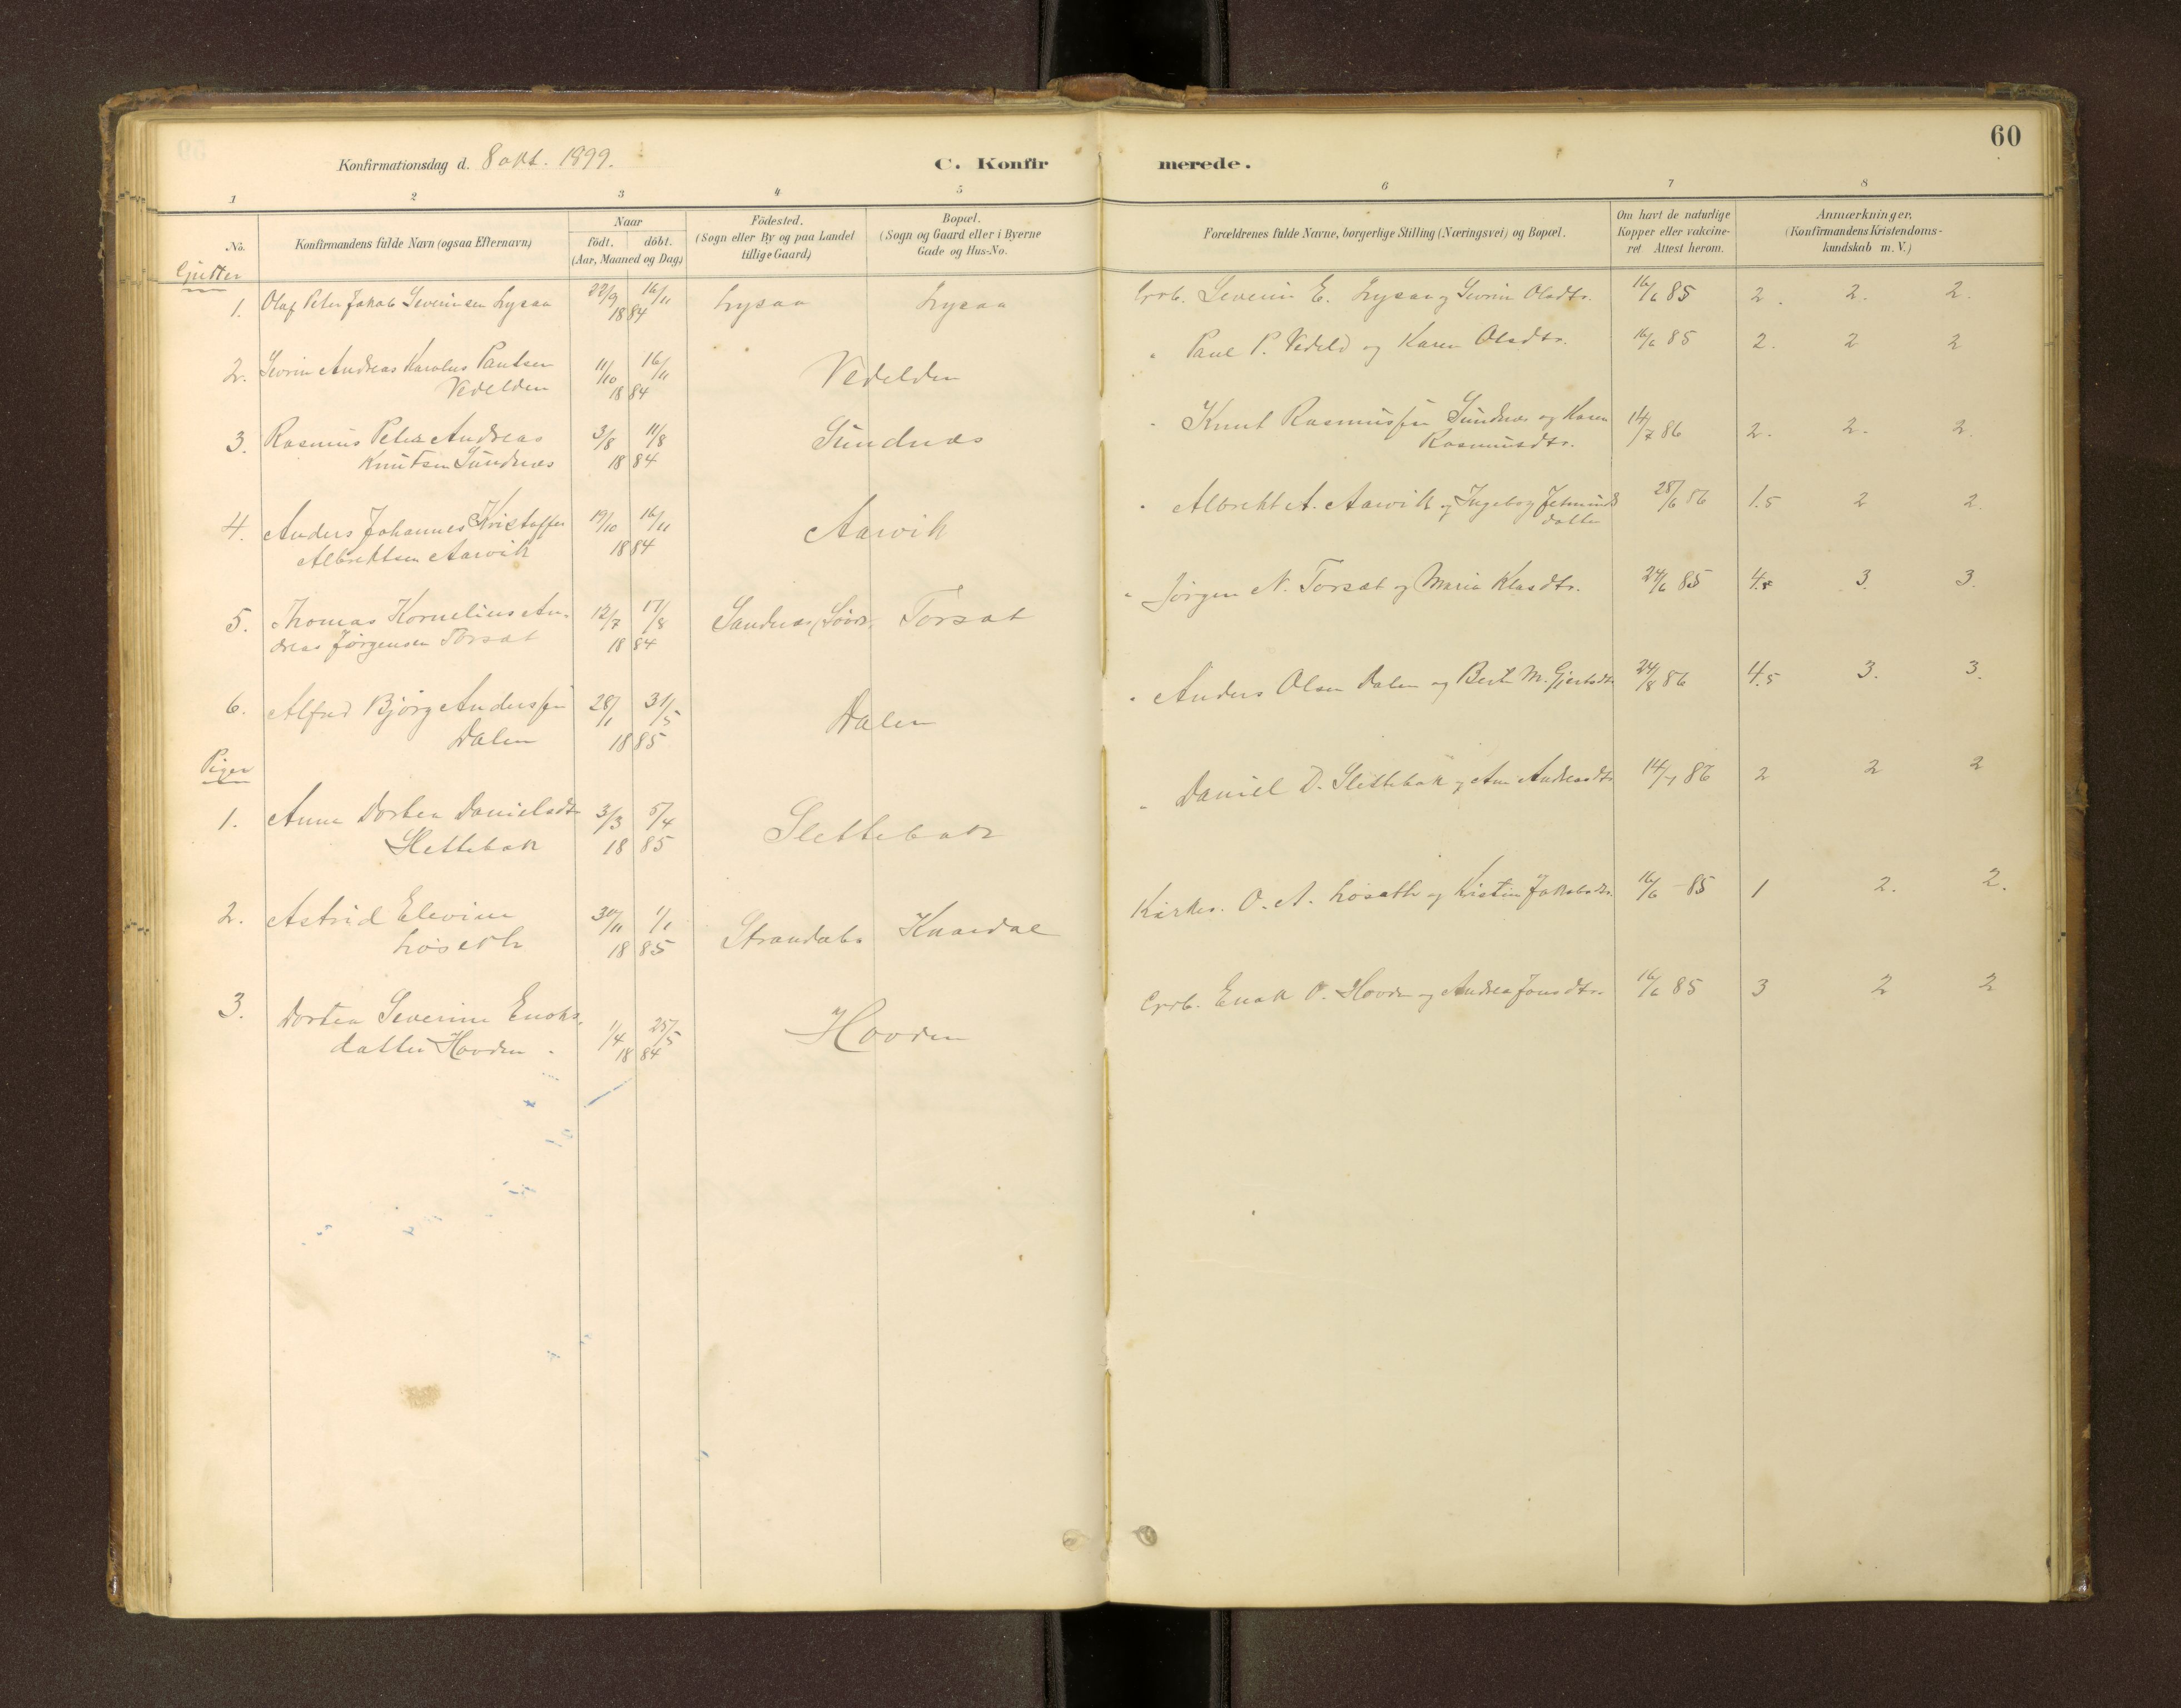 60
Konfirmationsdag d. 8 okt. 1899. C. Konfirmerede.
1 2 3 4 5 6 7 8
No.
Konfirmandens fulde Navn (ogsaa Efternavn)
Naar
födt. döbt.
(Aar, Maaned og Dag)
Födested.
(Sogn eller By og paa Landet
tillige Gaard)
Bopæl.
(Sogn og Gaard eller i Byerne
Gade og Hus-No.
Forældrenes fulde Navne, borgerlige Stilling (Næringsvei) og Bopæl.
Om havt de naturlige
Kopper eller vakcine-
ret Attest herom.
Anmærkninger,
(Konfirmandens Kristendoms-
kundskab m. V.)
Gjutter
1. Olaf Peter Jakob Severinsen Lysaa 22/9 16/11 Lysaa Lysaa Grb. Severin E. Lysaa og Sevrin Olsdtr. 16/6 85 2. 2. 2.
1884
2. Sevrin Andreas Karolus Paulsen 11/10 16/11 Vedelden " Paul P. Vedeld og Karen Olsdtr. 16/6 85 2. 2 2
Vedelden 1884
3. Rasmus Peter Andreas 3/8 11/8 Sundnæs " Knut Rasmussen Sundnæs og Karen 14/7 86 2. 2. 2.
Knutsen Sundnæs 1884 Rasmusdtr.
4. Anders Johannes Kristoffer 19/10 16/11 Aarvik " Albrekt A. Aarvik og Ingeborg Jetmunds 28/6 86 1.5 2 2.
Albrektsen Aarvik 1884 datter
5. Thomas Kornelius An- 12/7 17/8 Sandnæs, Torsæt " Jörgen N. Torsæt og Maria Klasdtr. 24/6 85 4. 3. 3.
dreas Jörgensen Torsæt 1884
6. Alfred Bjørg Anderssen 28/1 31/5 Dalen " Anders Olsen Dalen og Berte M. Gjertsdtr. 24/8 86 4.5 3. 3.
Dalen 1885
Piger
1. Anna Dortea Danielsdtr 3/3 5/4 Slettebak " Daniel D. Slettebak og Ane Andreasdtr 14/7 86 2 2 2
Slettebak 1885
2. Astrid Elevine 30/11 1/1 Strandab. Knardal Kirkes. O. A. Løseth og Kristine Jakobsdtr. 16/6 85 1 2. 2.
Løseth 1885
3. Dortea Severine Enoks- 1/4 25/5 Hovden Grb. Enok O. Hovden og Andrea Jonsdtr. 16/6 85 3 2 2
datter Hovden. 1884